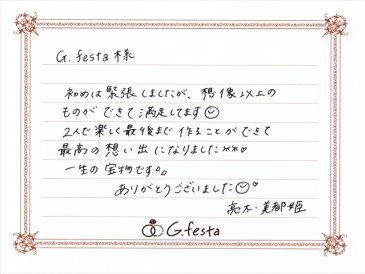 G.festa様
初めは緊張しましたが、想像以上の
ものができて満足してます
2人で楽しく最後まで作ることができて
最高の想い出になりました
一生の宝物です。
ありがとうございました
亮太・美都姫
G.festa